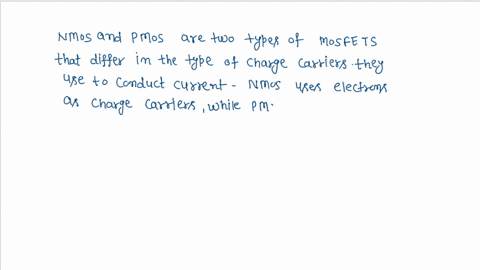 NMOS and PMOS are two types of MOSFETS
that differ in the type of charge carriers they
use to conduct current - NMOS uses electrons
as charge carriers, while PM